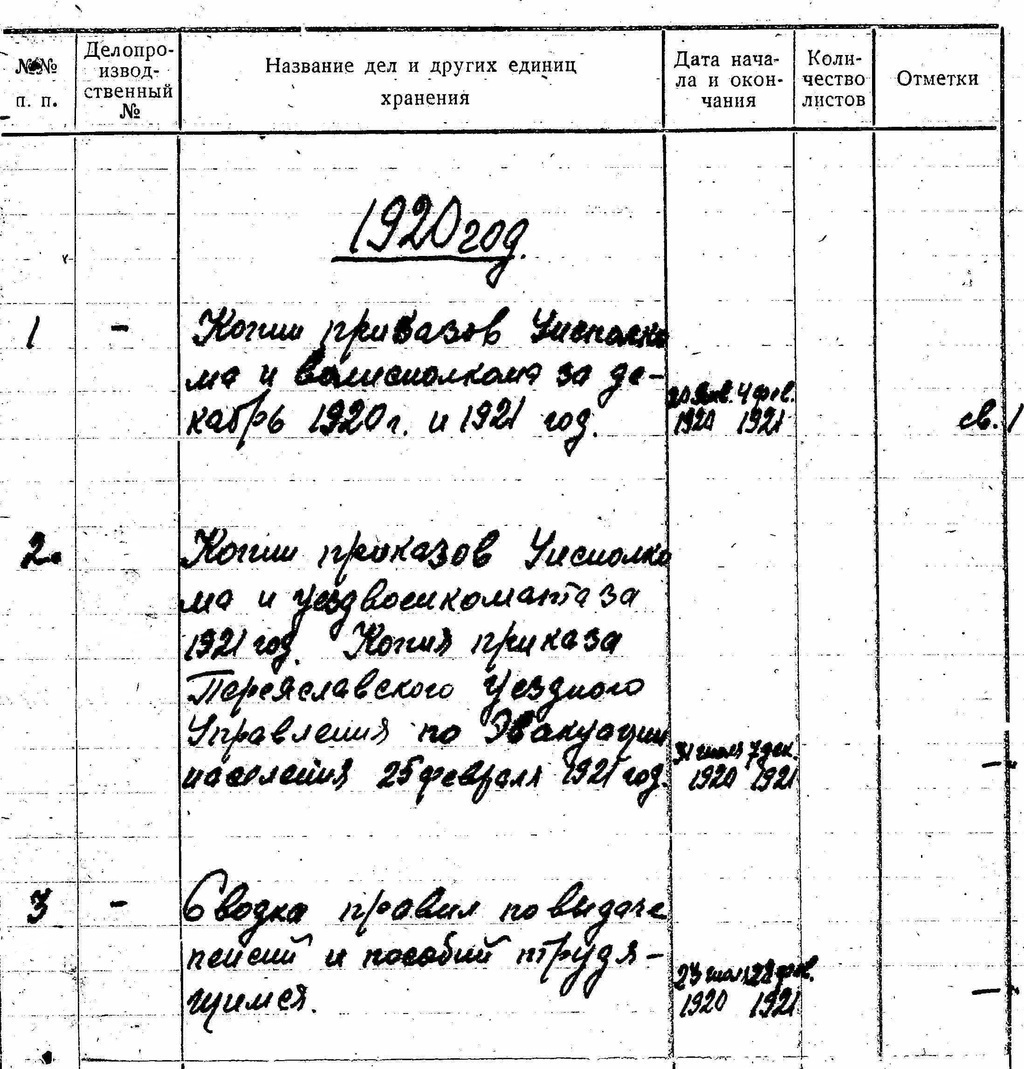 №№ п. п.
Делопро-
извод-
ственный
№
Название дел и других единиц
хранения
Дата нача-
ла и окон-
чания
Коли-
чество
листов
Отметки
1920 год.
1 - Копии приказов Уисполко
ма и волисполкома за де-
кабрь 1920 г. и 1921 год.
20 янв. 4 фев.
1920 1921
св. 1
2. Копии приказов Уисполко
ма и уездвоенкомата за
1921 год. Копия приказа
Переяславского уездного
Управления по Эвакуации
населения 25 февраля 1921 год.
31 июля 7 дек.
1920 1921
—
3 - Сводка правил по выдаче
пенсий и пособий трудя-
щимся.
23 июля 28 фев.
1920 1921
—